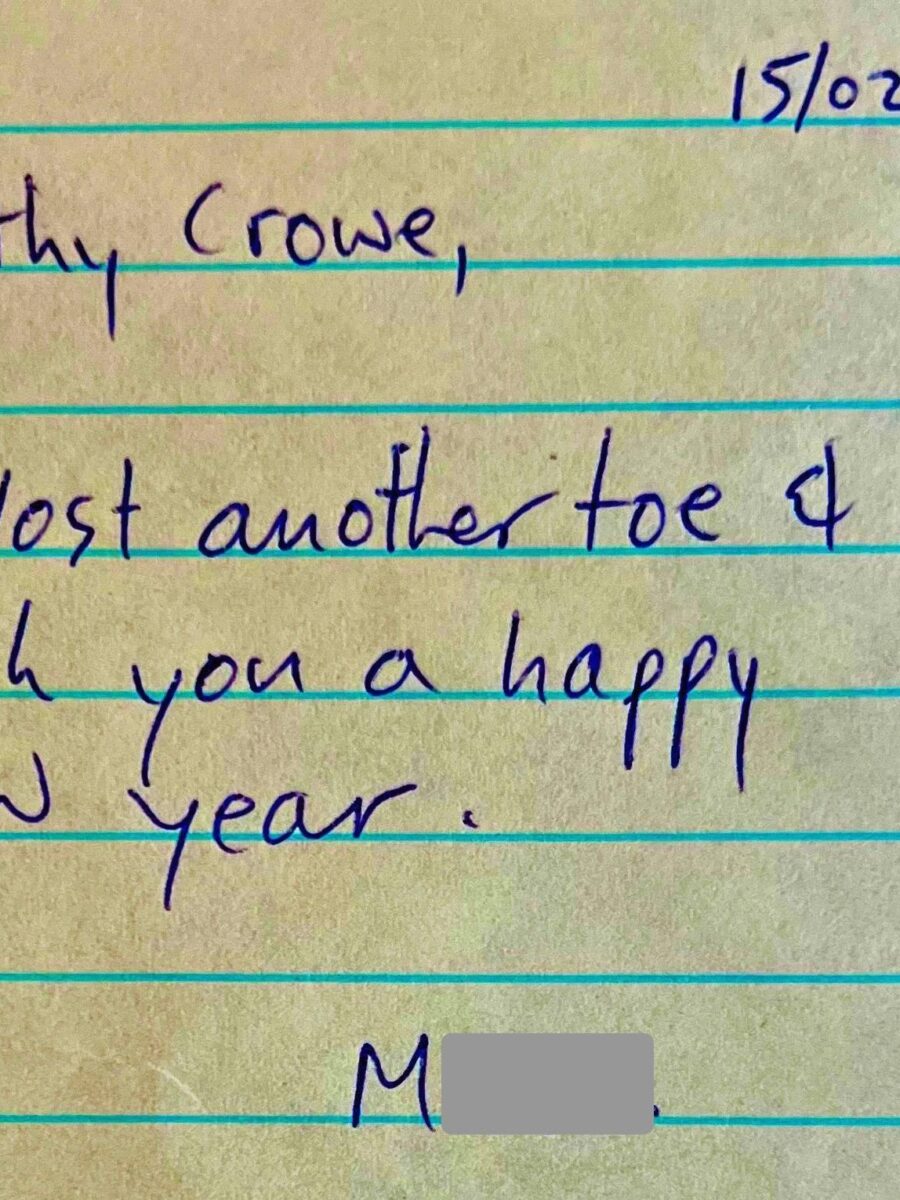 15/02
thy Crowe,
lost another toe &
h you a happy
w year.
M